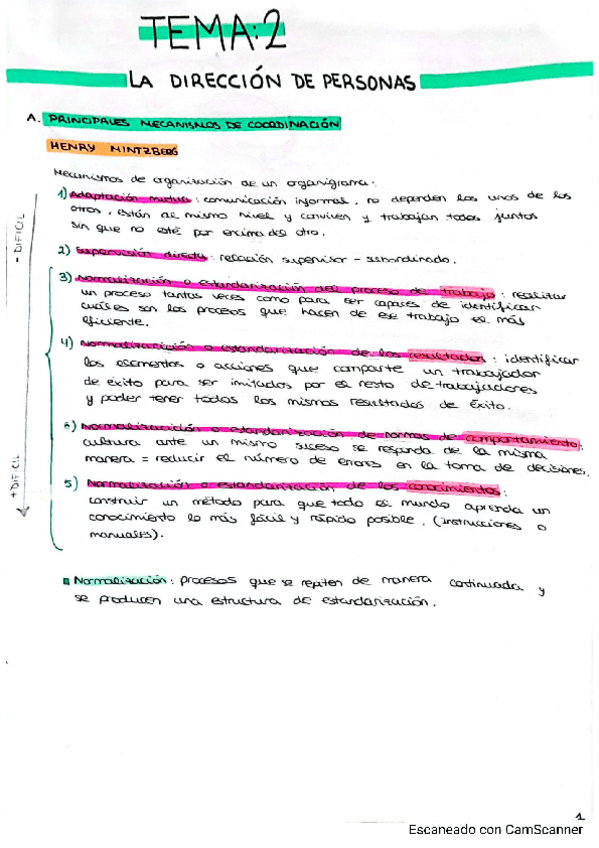 TEMA:2
LA DIRECCIÓN DE PERSONAS
A. PRINCIPALES MECANISMOS DE COORDINACIÓN
HENRY MINTZBERG
Mecanismos de organización de un organigrama:
1) Adaptación mutua: comunicación informal, no dependen los unos de los
otros, están al mismo nivel y conviven y trabajan todos juntos
sin que no esté por encima del otro.
- DIFICIL
2) Supervisión directa: relación supervisor - subordinado.
3) Normalización o estandarización del proceso de trabajo: realizar
un proceso tantas veces como para ser capaces de identificar
cuáles son los procesos que hacen de ese trabajo el más
eficiente.
4) Normalización o estandarización de los resultados: identificar
los elementos o acciones que comparte un trabajador
de éxito para ser imitados por el resto de trabajadores
y poder tener todos los mismos resultados de éxito.
6) Normalización o estandarización de normas de comportamiento:
cultura ante un mismo suceso se responda de la misma
manera = reducir el número de errores en la toma de decisiones.
+ DIFICIL
5) Normalización o estandarización de los conocimientos:
construir un método para que todo el mundo aprenda un
conocimiento lo más fácil y rápido posible. (instrucciones o
manuales).
Normalización: procesos que se repiten de manera continuada y
se producen una estructura de estandarización.
1
Escaneado con CamScanner